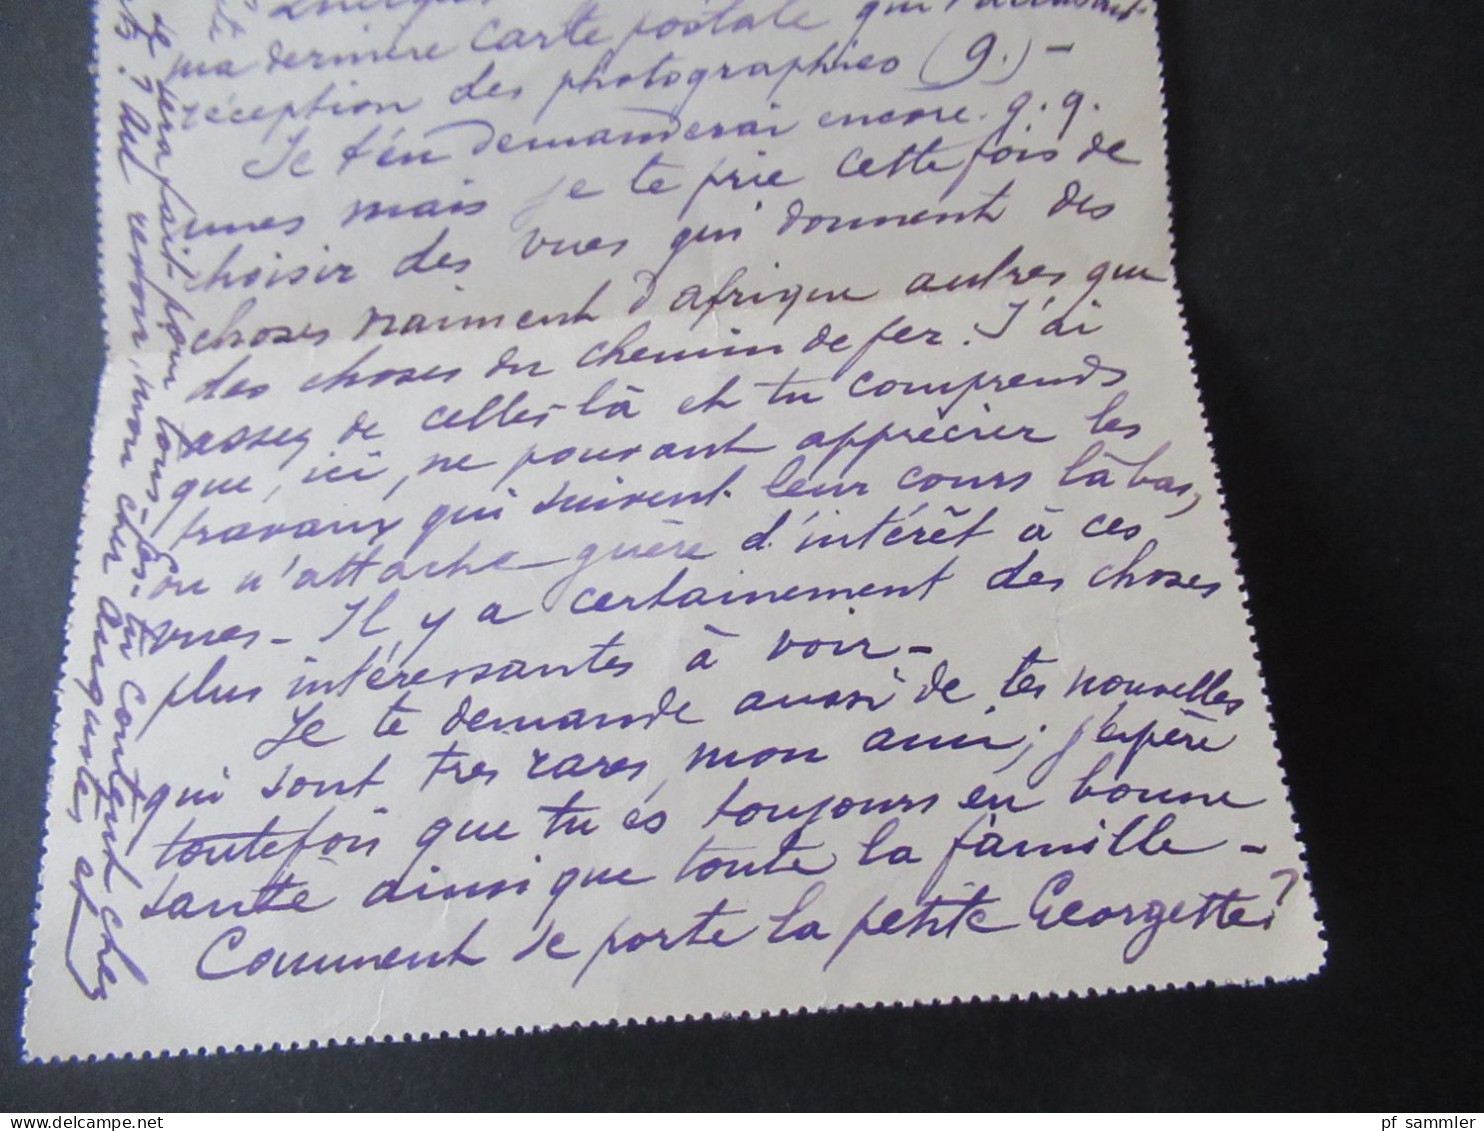 ma dernière carte postale qui t'accusait
réception des photographies (9.) –
Je t'en demanderai encore q.q.
unes mais je te prie cette fois de
choisir des vues qui donnent des
choses vraiment d'afrique autres que
des choses du chemin de fer. J'ai
assez de celles-là et tu comprends
que, ici, ne pouvant apprécier les
travaux qui suivent leur cours là bas,
on n'attache guère d'intérêt à ces
vues – Il y a certainement des choses
plus intéressantes à voir –
Je te demande aussi de tes nouvelles
qui sont très rares, mon ami; j'espère
toutefois que tu es toujours en bonne
santé ainsi que toute la famille –
Comment se porte la petite Georgette?
sera fait pour tous – Es-tu content cher
? Au revoir, mon cher
pf sammler